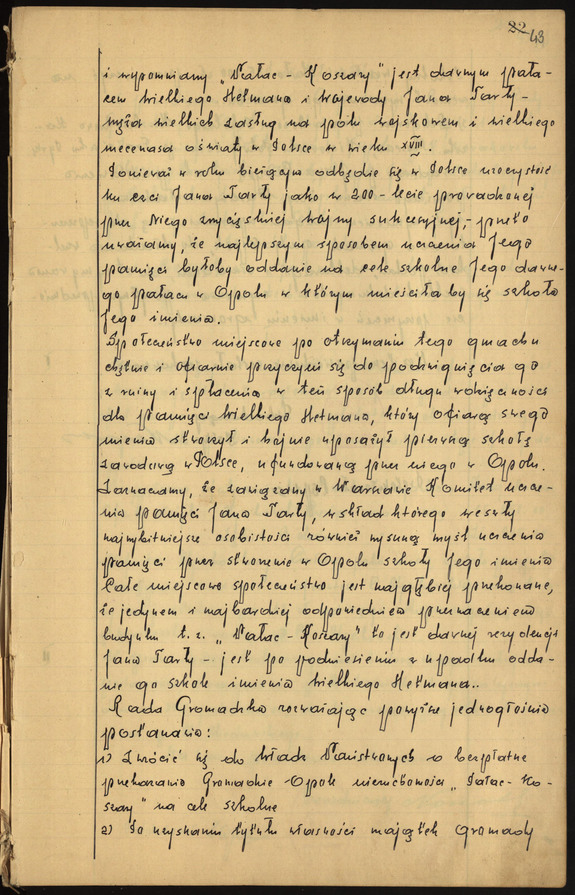 22 43
i wypomniany „Pałac - Koszary" jest dawnym pała-
cem Wielkiego Hetmana i Wojewody Jana Tarły -
męża wielkich zasług na polu wojskowem i wielkiego
mecenasa oświaty w Polsce w wieku XVIII.
Ponieważ w roku bieżącym odbędzie się w Polsce uroczystość
ku czci Jana Tarły jako w 200-lecie prowadzonej
przez Niego zwycięskiej wojny sukcesyjnej,- przeto
uważamy, że najlepszym sposobem uczczenia Jego
pamięci byłoby oddanie na cele szkolne Jego dawne-
go pałacu w Opolu w którym mieściłaby się szkoła
Jego imienia.
Społeczeństwo miejscowe po otrzymaniu tego gmachu
chętnie i ofiarnie przyczyni się do podźwignięcia go
z ruiny i spłacenia w ten sposób długu wdzięczności
dla pamięci Wielkiego Hetmana, który ofiarą swego
mienia stworzył i hojnie uposażył pierwszą szkołę
zawodową w Polsce, ufundowaną przez niego w Opolu.
Zaznaczamy, że zawiązany w Warszawie Komitet uczcze-
nia pamięci Jana Tarły, w skład którego weszły
najwybitniejsze osobistości również wysuną myśl uczczenia
pamięci przez stworzenie w Opolu szkoły Jego imienia
Całe miejscowe społeczeństwo jest najgłębiej przekonane,
że jedynem i najbardziej odpowiedniem przeznaczeniem
budynku t. z. „Pałac - Koszary" to jest dawnej rezydencji
Jana Tarły - jest po podniesieniu z upadku odda-
nie go szkole imienia Wielkiego Hetmana..
Rada Gromadzka rozważając powyższe jednogłośnie
postanawia:
1) Zwrócić się do Władz Państwowych o bezpłatne
przekazanie Gromadzie Opole nieruchomości „Pałac - Ko-
szary" na cele szkolne
2) Po uzyskaniu tytułu własności majątek Gromady